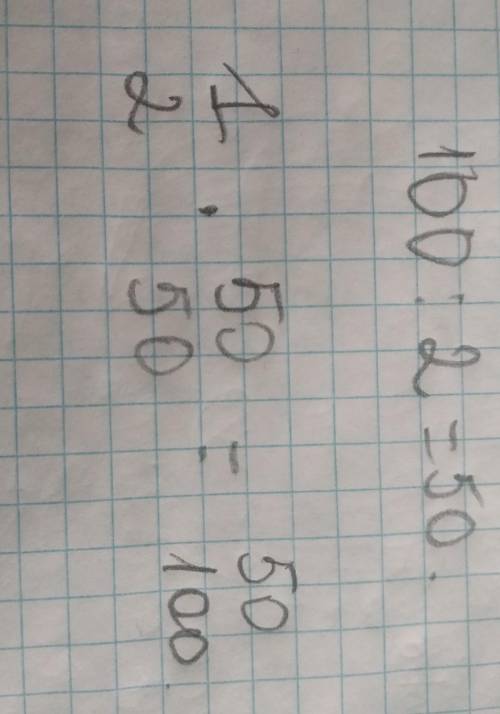 100 : 2 = 50.
1 . 50 = 50
2 50 100.